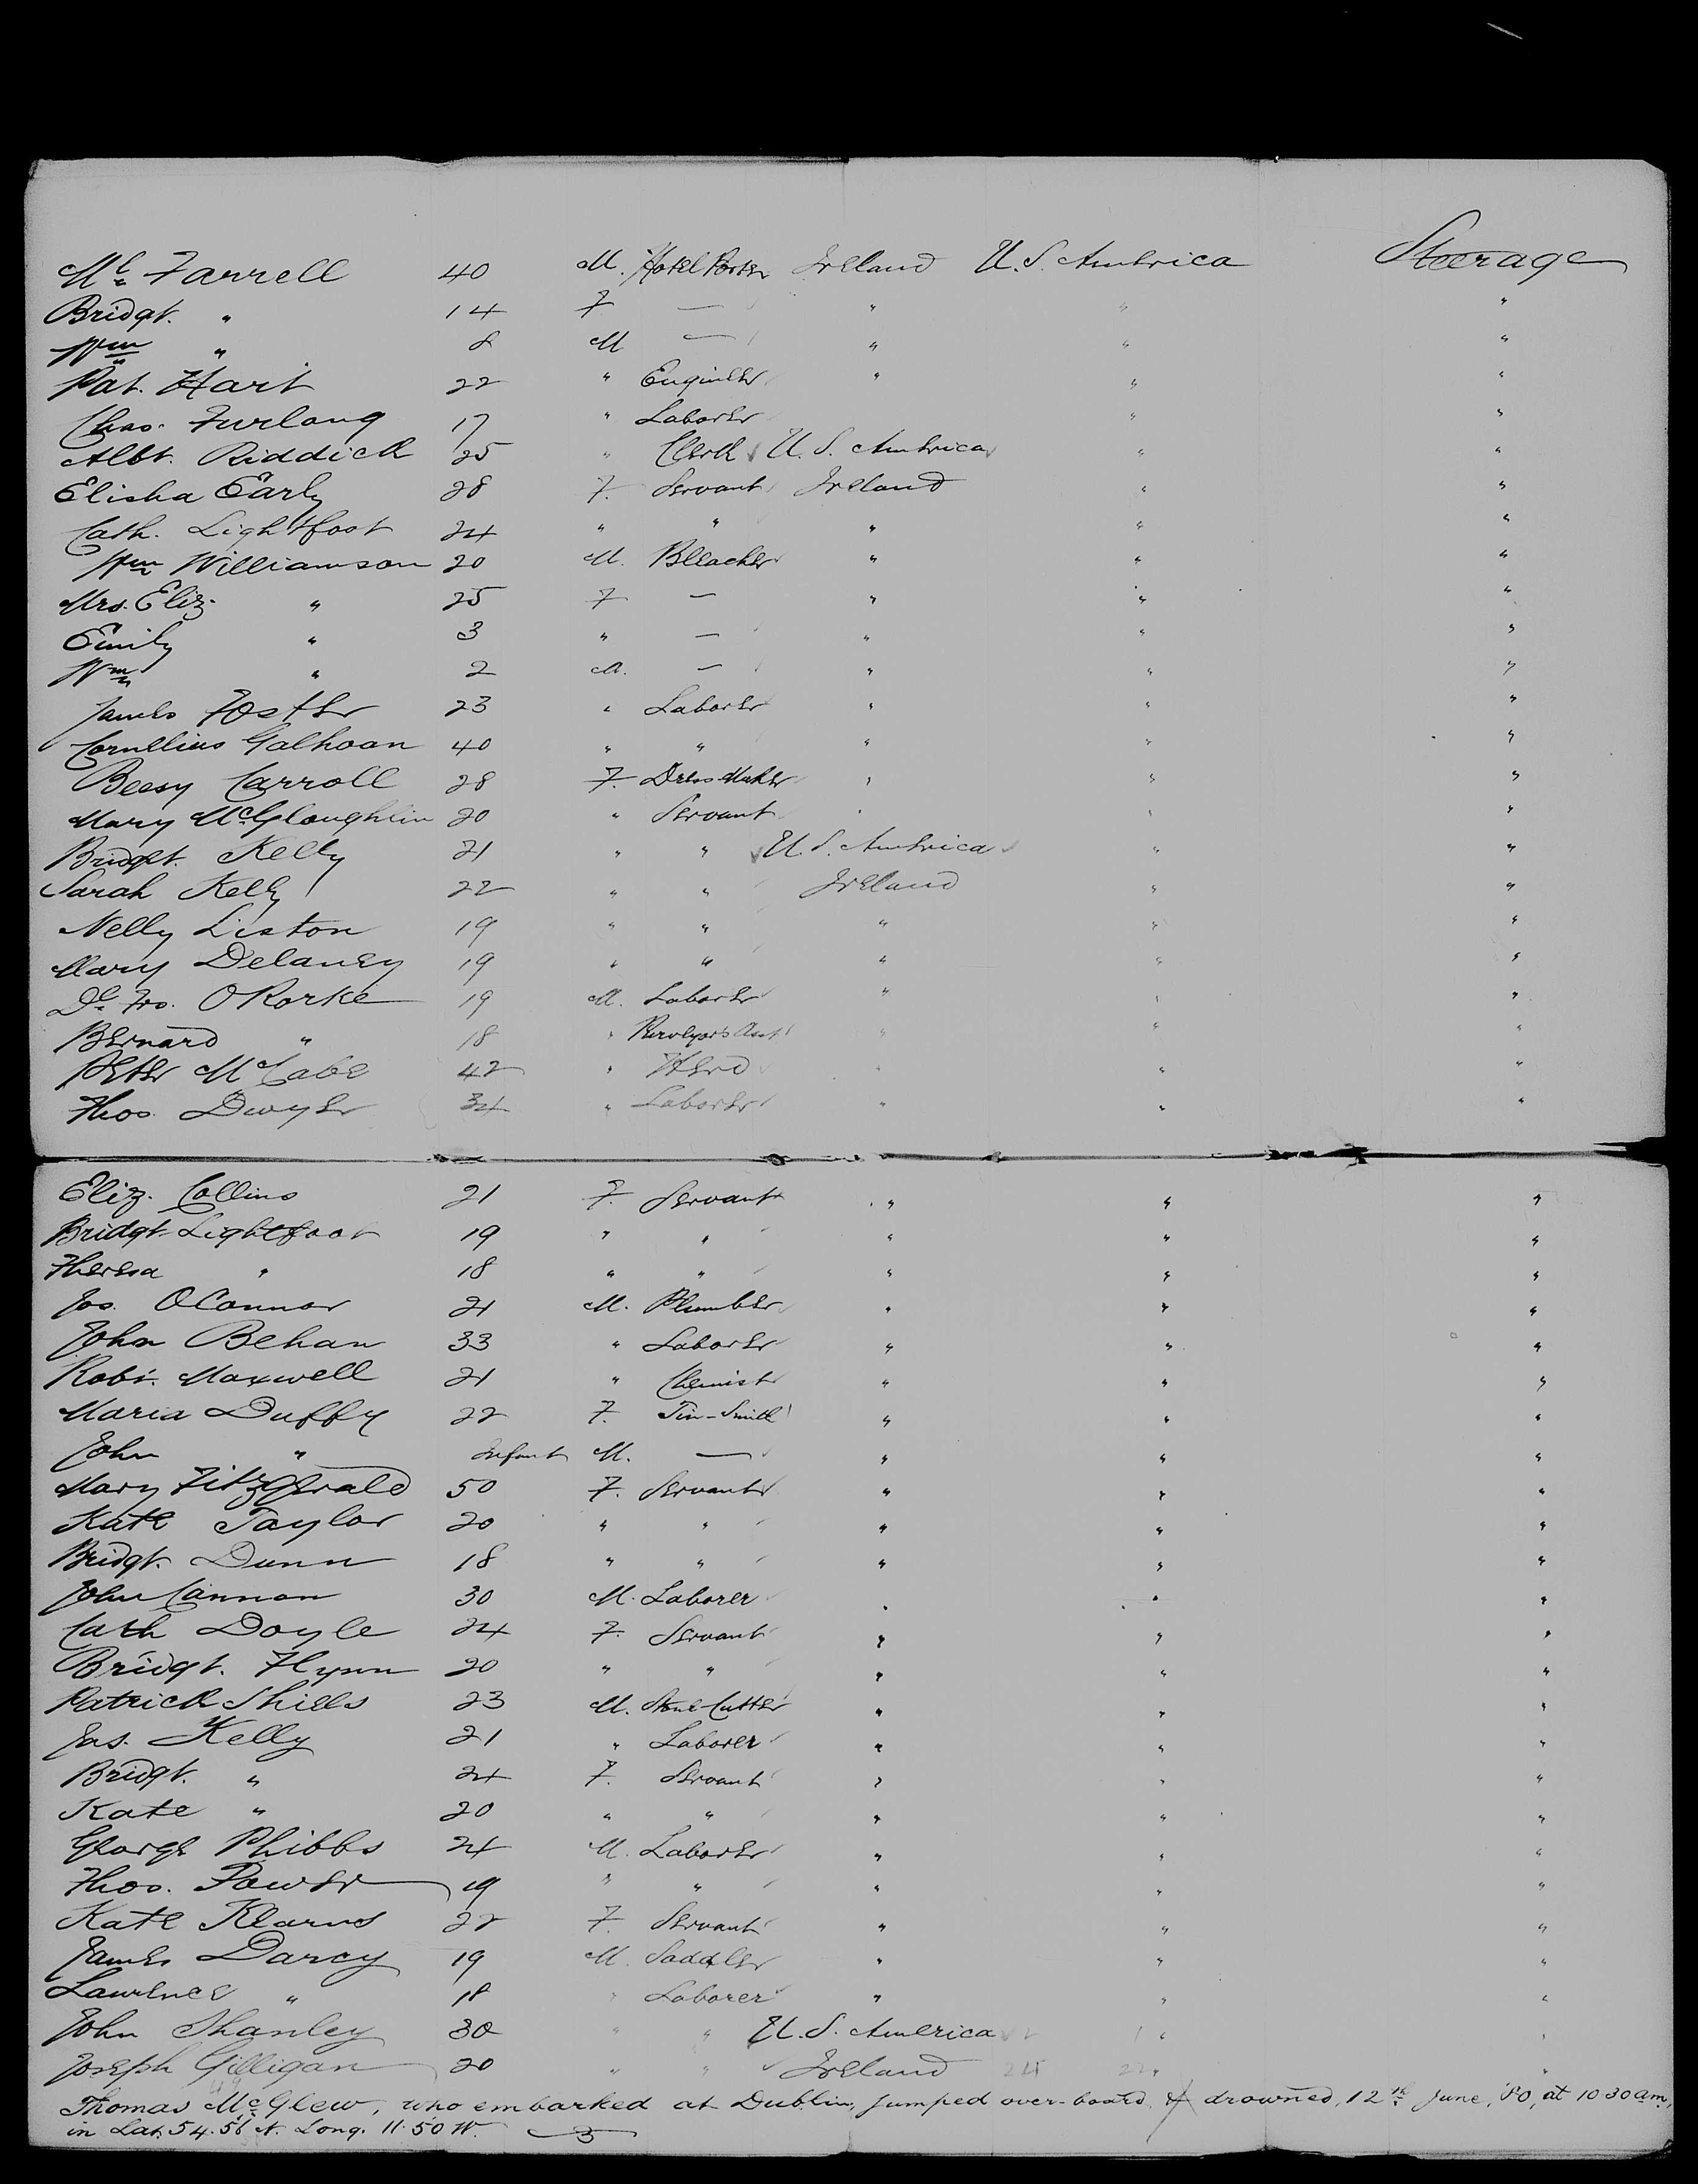 Ml. Farrell 40 M. Hotel Porter Ireland U. S. America Steerage
Bridgt. " 14 F — " " "
Wm " 8 M — " " "
Pat. Hart 22 " Engineer " " "
Chas. Furlong 17 " Laborer " "
Albt. Riddick 25 " Clerk U. S. America " "
Elisha Early 28 F. Servant Ireland " "
Cath. Lightfoot 24 " " " " "
Wm Williamson 20 M. Bleacher " " "
Mrs. Eliz. " 25 F — " " "
Emily " 3 " — " " "
Wm " 2 M. — " " "
James Foster 23 " Laborer " " "
Cornelius Galhoan 40 " " " " "
Bessy Carroll 28 F. Dress-Maker " " "
Mary McGloughlin 20 " Servant " " "
Bridget. Kelly 21 " " U. S. America " "
Sarah Kelly 22 " " Ireland " "
Nelly Liston 19 " " " " "
Mary Delaney 19 " " " " "
ORorke 19 M. Laborer " " "
Bernard " 18 " " " "
Peter McCabe 42 " Herd " " "
Thos. Dwyer 34 " Laborer " " "
Eliz. Collins 21 F. Servant " " "
Bridgt. Lightfoot 19 " " " " "
Theresa " 18 " " " " "
Jos. OConnor 21 M. Plumber " " "
John Behan 33 " Laborer " " "
Robt. Maxwell 21 " Chemist " " "
Maria Duffy 22 F. Tin-Smith " " "
John " Infant M. — " " "
Mary Fitzgerald 50 F. Servant " " "
Kate Taylor 20 " " " " "
Bridgt. Dunn 18 " " " " "
John Cannon 30 M. Laborer " " "
Cath Doyle 24 F. Servant " " "
Bridgt. Flynn 20 " " " " "
Patrick Shiels 23 M. Stone-Cutter " " "
Jas. Kelly 21 " Laborer " " "
Bridgt. " 24 F. Servant " " "
Kate " 20 " " " " "
George Phibbs 24 M. Laborer " " "
Thos. Power 19 " " " " "
Kate Kearns 22 F. Servant " " "
James Darcy 19 M. Saddler " " "
Lawrence " 18 " Laborer " " "
John Shanley 30 " " U. S. America " "
Joseph Gilligan 20 " " Ireland " "
Thomas McGlew, who embarked at Dublin, jumped over-board, & drowned, 12th June, '80, at 10 30 am,
in Lat. 54.56 N. Long. 11.50 W.